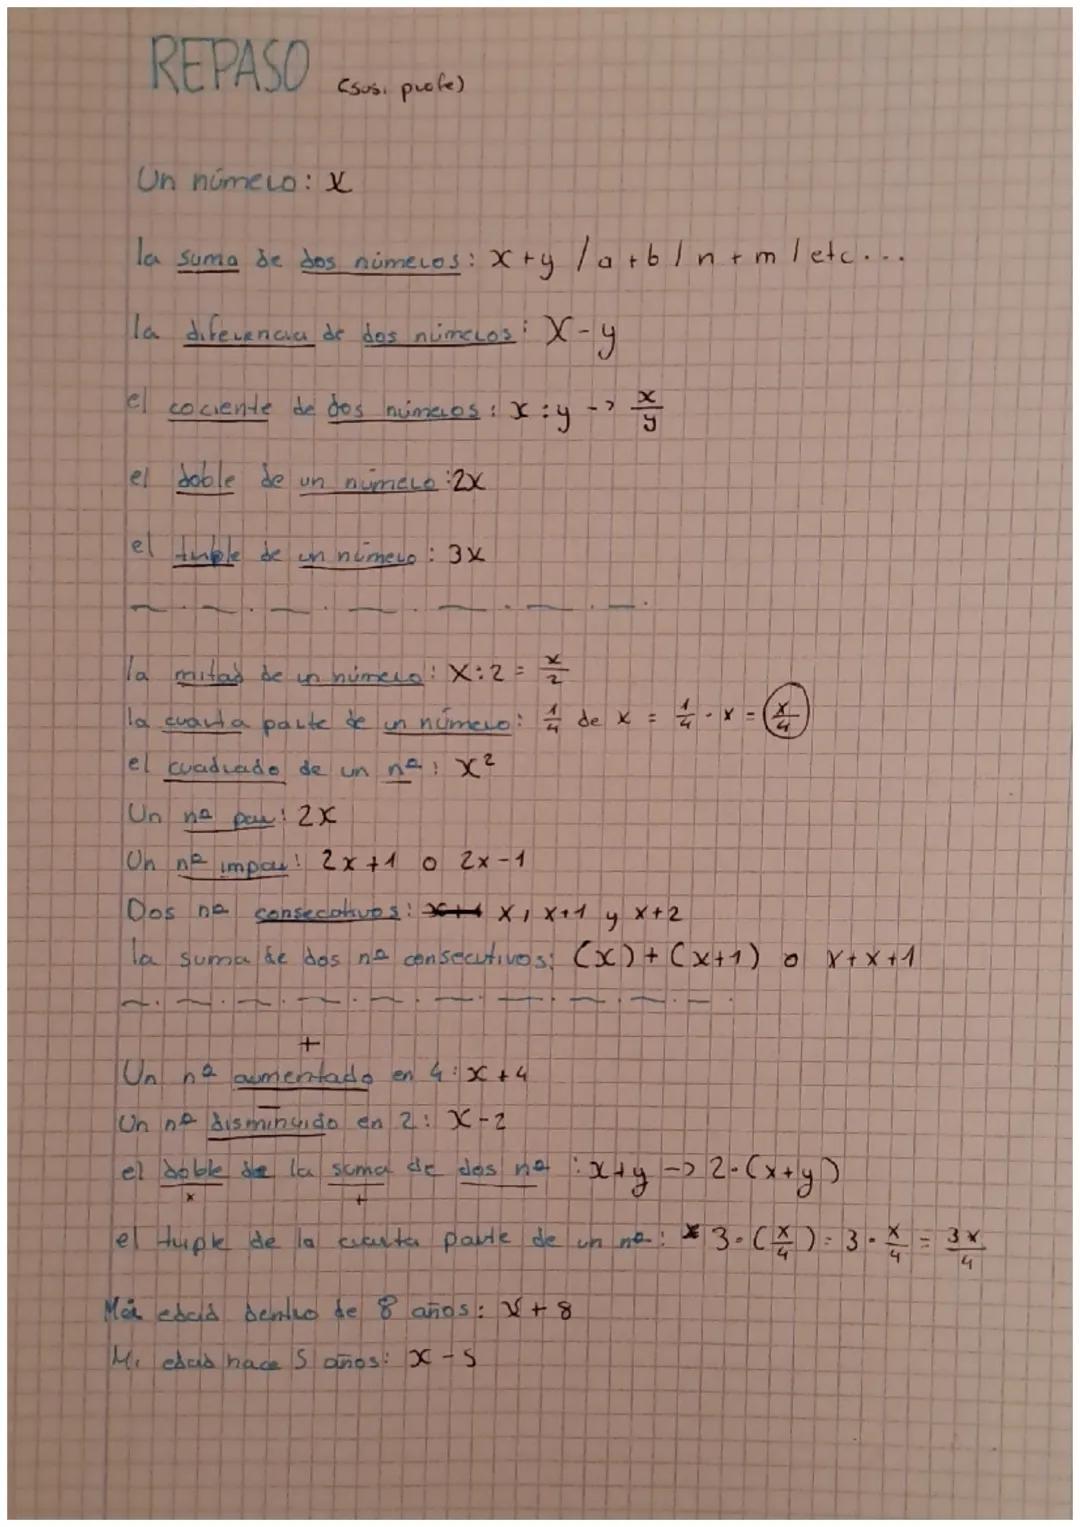 REPASO (sus. profe)
Un número: x
la suma de dos números: x+y / a+b / n+m / etc...
la diferencia de dos números: x-y
el cociente de dos números: x:y -> x/y
el doble de un número: 2x
el triple de un número: 3x
la mitad de un número: x:2 = x/2
la cuarta parte de un número: 1/4 de x = 1/4 · x = x/4
el cuadrado de un nº: x²
Un nº par: 2x
Un nº impar: 2x+1 o 2x-1
Dos nº consecutivos: x+1 x, x+1 y x+2
la suma de dos nº consecutivos: (x)+(x+1) o x+x+1
+
Un nº aumentado en 4: x+4
-
Un nº disminuido en 2: x-2
el doble de la suma de dos nº: x+y -> 2·(x+y)
x +
el triple de la cuarta parte de un nº: 3·(x/4) = 3·x/4 = 3x/4
Mi edad dentro de 8 años: x+8
Mi edad hace 5 años: x-5